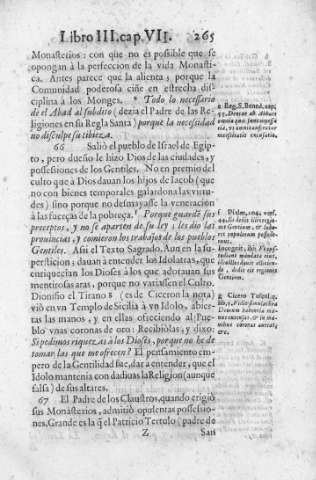 Libro III. cap. VII. 265
Monasterios: con que no es posible que se
opongan à la perfeccion de la vida Monasti-
ca. Antes parece que la alienta; porque la
Comunidad poderosa ciñe en estrecha dis-
ciplina à los Monges. Todo lo necessario
de el Abad al subdito (dezia el Padre de las Re-
ligiones en su Regla Santa) porque la necesidad
no disculpe su tibieza.
66 Saliò el pueblo de Israel de Egip-
to, pero dueño le hizo Dios de las ciudades, y
possessiones de los Gentiles. No en premio del
culto que à Dios dauan los hijos de Iacob (que
no con bienes temporales galardona las virtu-
des) sino porque no desmayasse la veneracion
à las fuerças de la pobreça. Porque guardè sus
preceptos, y no se aparten de su ley; les diò las
prouincias, y comieron los trabajos de los pueblos
Gentiles. Assi el Texto Sagrado. Aun en la su-
persticion: dauan à entender los Idolatras, que
enriquecian los Dioses à los que adotauan sus
mentirosas aras, porque no variassen el Culto.
Dionisio el Tirano g (es de Ciceron la nota)
viò en vn Templo de Sicilia à vn Idolo, abier-
tas las manos, y en ellas ofreciendo al Pue-
blo vnas coronas de oro: Recibiòlas, y dixo:
Si pedimos riquezas à los Dioses, porque no he de
tomar las que me ofrecen? El pensamiento em-
pero de la Gentilidad fue, dar à entender, que el
Idolo mantenia con dadiuas la Religion (aunque
falsa) de sus altares.
67 El Padre de los Claustros, quando erigiò
sus Monasterios, admitiò opulentas possessio-
nes. Grande es la q̃ el Patricio Tertulo, padre de
Z San
e Reg. S. Bened. cap.
55. Dentur ab Abbate
omnia quae sunt necessa-
ria, vt omnis auferatur
necessitatis excusatio.
f Psalm. 104. vers.
44. Et dedit illis regio-
nes Gentium, & labo-
res populorum possede-
runt.
g Cicero Tuscul. q.